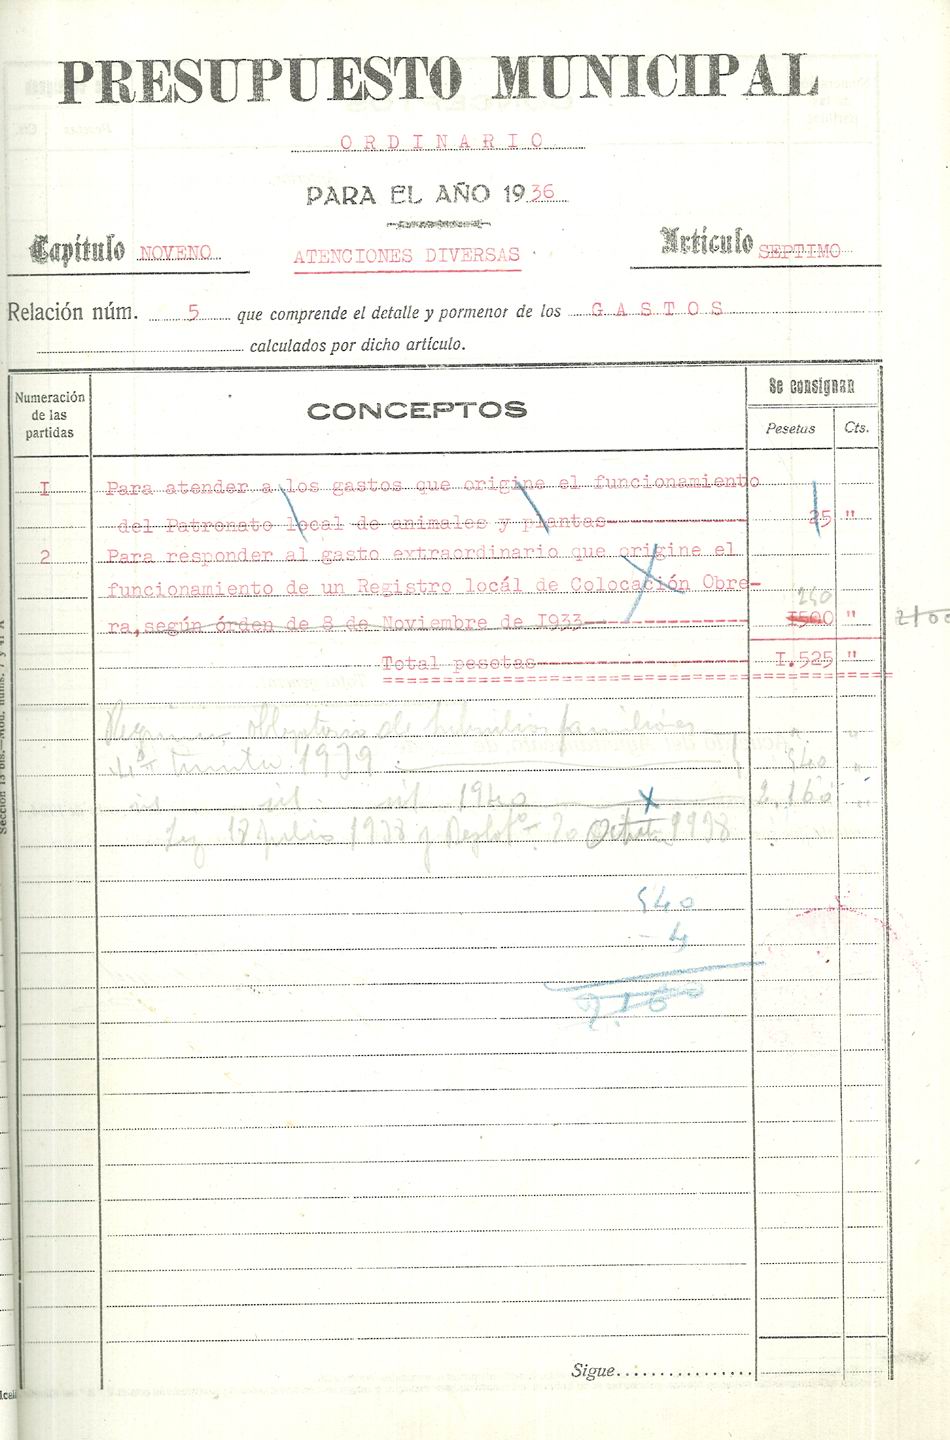 PRESUPUESTO MUNICIPAL
ORDINARIO
PARA EL AÑO 1936
Capítulo NOVENO ATENCIONES DIVERSAS Artículo SEPTIMO
Relación núm. 5 que comprende el detalle y pormenor de los GASTOS
calculados por dicho artículo.
Numeración de las partidas CONCEPTOS Se consignan
Pesetas Cts.
I Para atender a los gastos que origine el funcionamiento
del Patronato local de animales y plantas 25 "
2 Para responder al gasto extraordinario que origine el
funcionamiento de un Registro locál de Colocación Obre-
250
ra, según órden de 8 de Noviembre de I933 I500 "
Total pesetas I.525 "
Regimen Obligatorio de Subsidios familiares
1939 540
id id id 1940 2.160
Ley 18 julio 1938 y Reglto 20 Octubre 1938
540
4
2160
Sigue